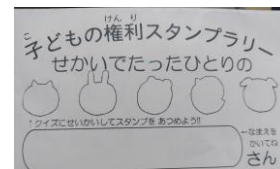 子どもの権利スタンプラリー
せかいでたったひとりの
↑クイズにせいかいしてスタンプをあつめよう!!
←なまえを
かいてね
さん